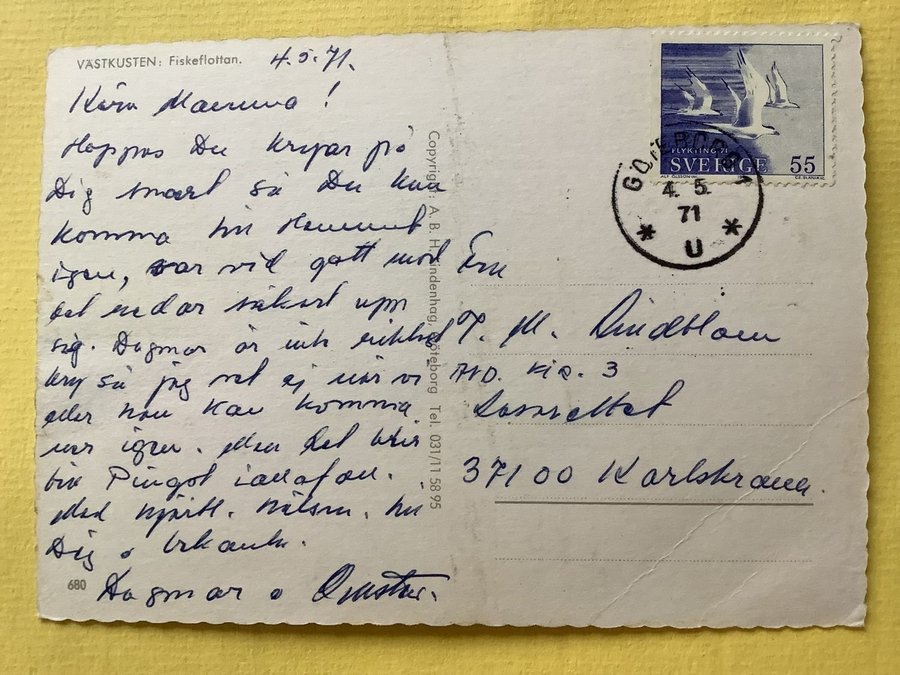 VÄSTKUSTEN: Fiskeflottan.
4.5.71.
Kära Mamma!
Hoppas Du kryar på
Dig snart så Du kan
komma till Hemmet
igen, var vid gott mod
det ordar säkert upp
sig. Dagmar är inte riktigt
kry så jag vet ej när vi
eller hon kan komma
ner igen. Men det blir
till Pingst iallafall.
Med hjärtl. hälsn. till
Dig o
Dagmar o
680
Copyright: A. B. H. Lindenhag, Göteborg Tel. 031/11 58 95
FLYKTING 71
SVERIGE 55
GÖTEBORG 1
4. 5.
71
* U *
Fru
T. M. Lindblom
AVD. Kir. 3
Lasarettet
37100 Karlskrona.